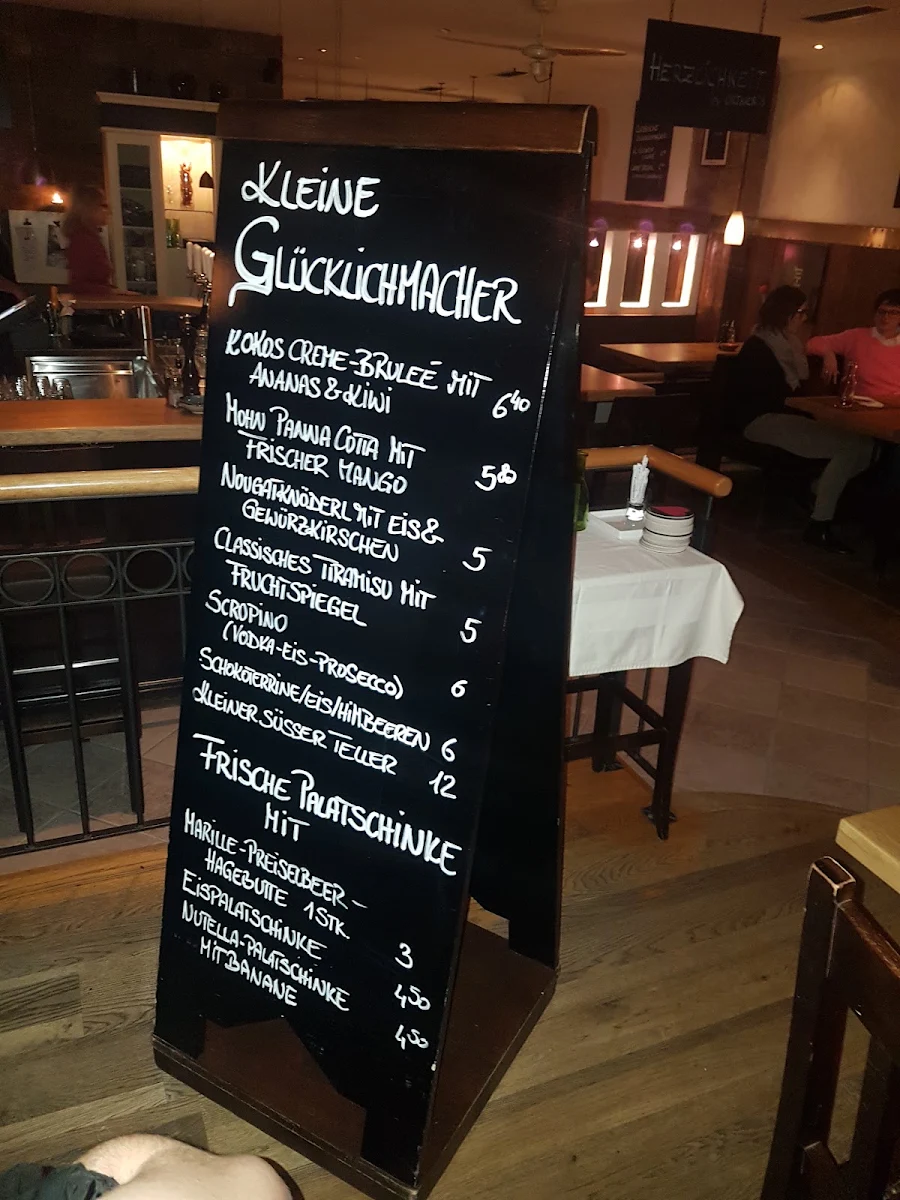 HERZLICHKEIT
KLEINE
GLÜCKLICHMACHER
KOKOS CREME-BRULEÉ MIT
ANANAS & KIWI 6 40
MOHN PANNA COTTA MIT
FRISCHER MANGO 5 80
NOUGATKNÖDERL MIT EIS &
GEWÜRZKIRSCHEN 5
CLASSISCHES TIRAMISU MIT
FRUCHTSPIEGEL 5
SCROPINO
(VODKA-EIS-PROSECCO) 6
SCHOKOTERRINE/EIS/HIMBEEREN 6
KLEINER SÜSSER TELLER 12
FRISCHE PALATSCHINKE
MIT
MARILLE-PREISELBEER-
HAGEBUTTE 1STK. 3
EISPALATSCHINKE 4,50
NUTELLA-PALATSCHINKE
MIT BANANE 4,50